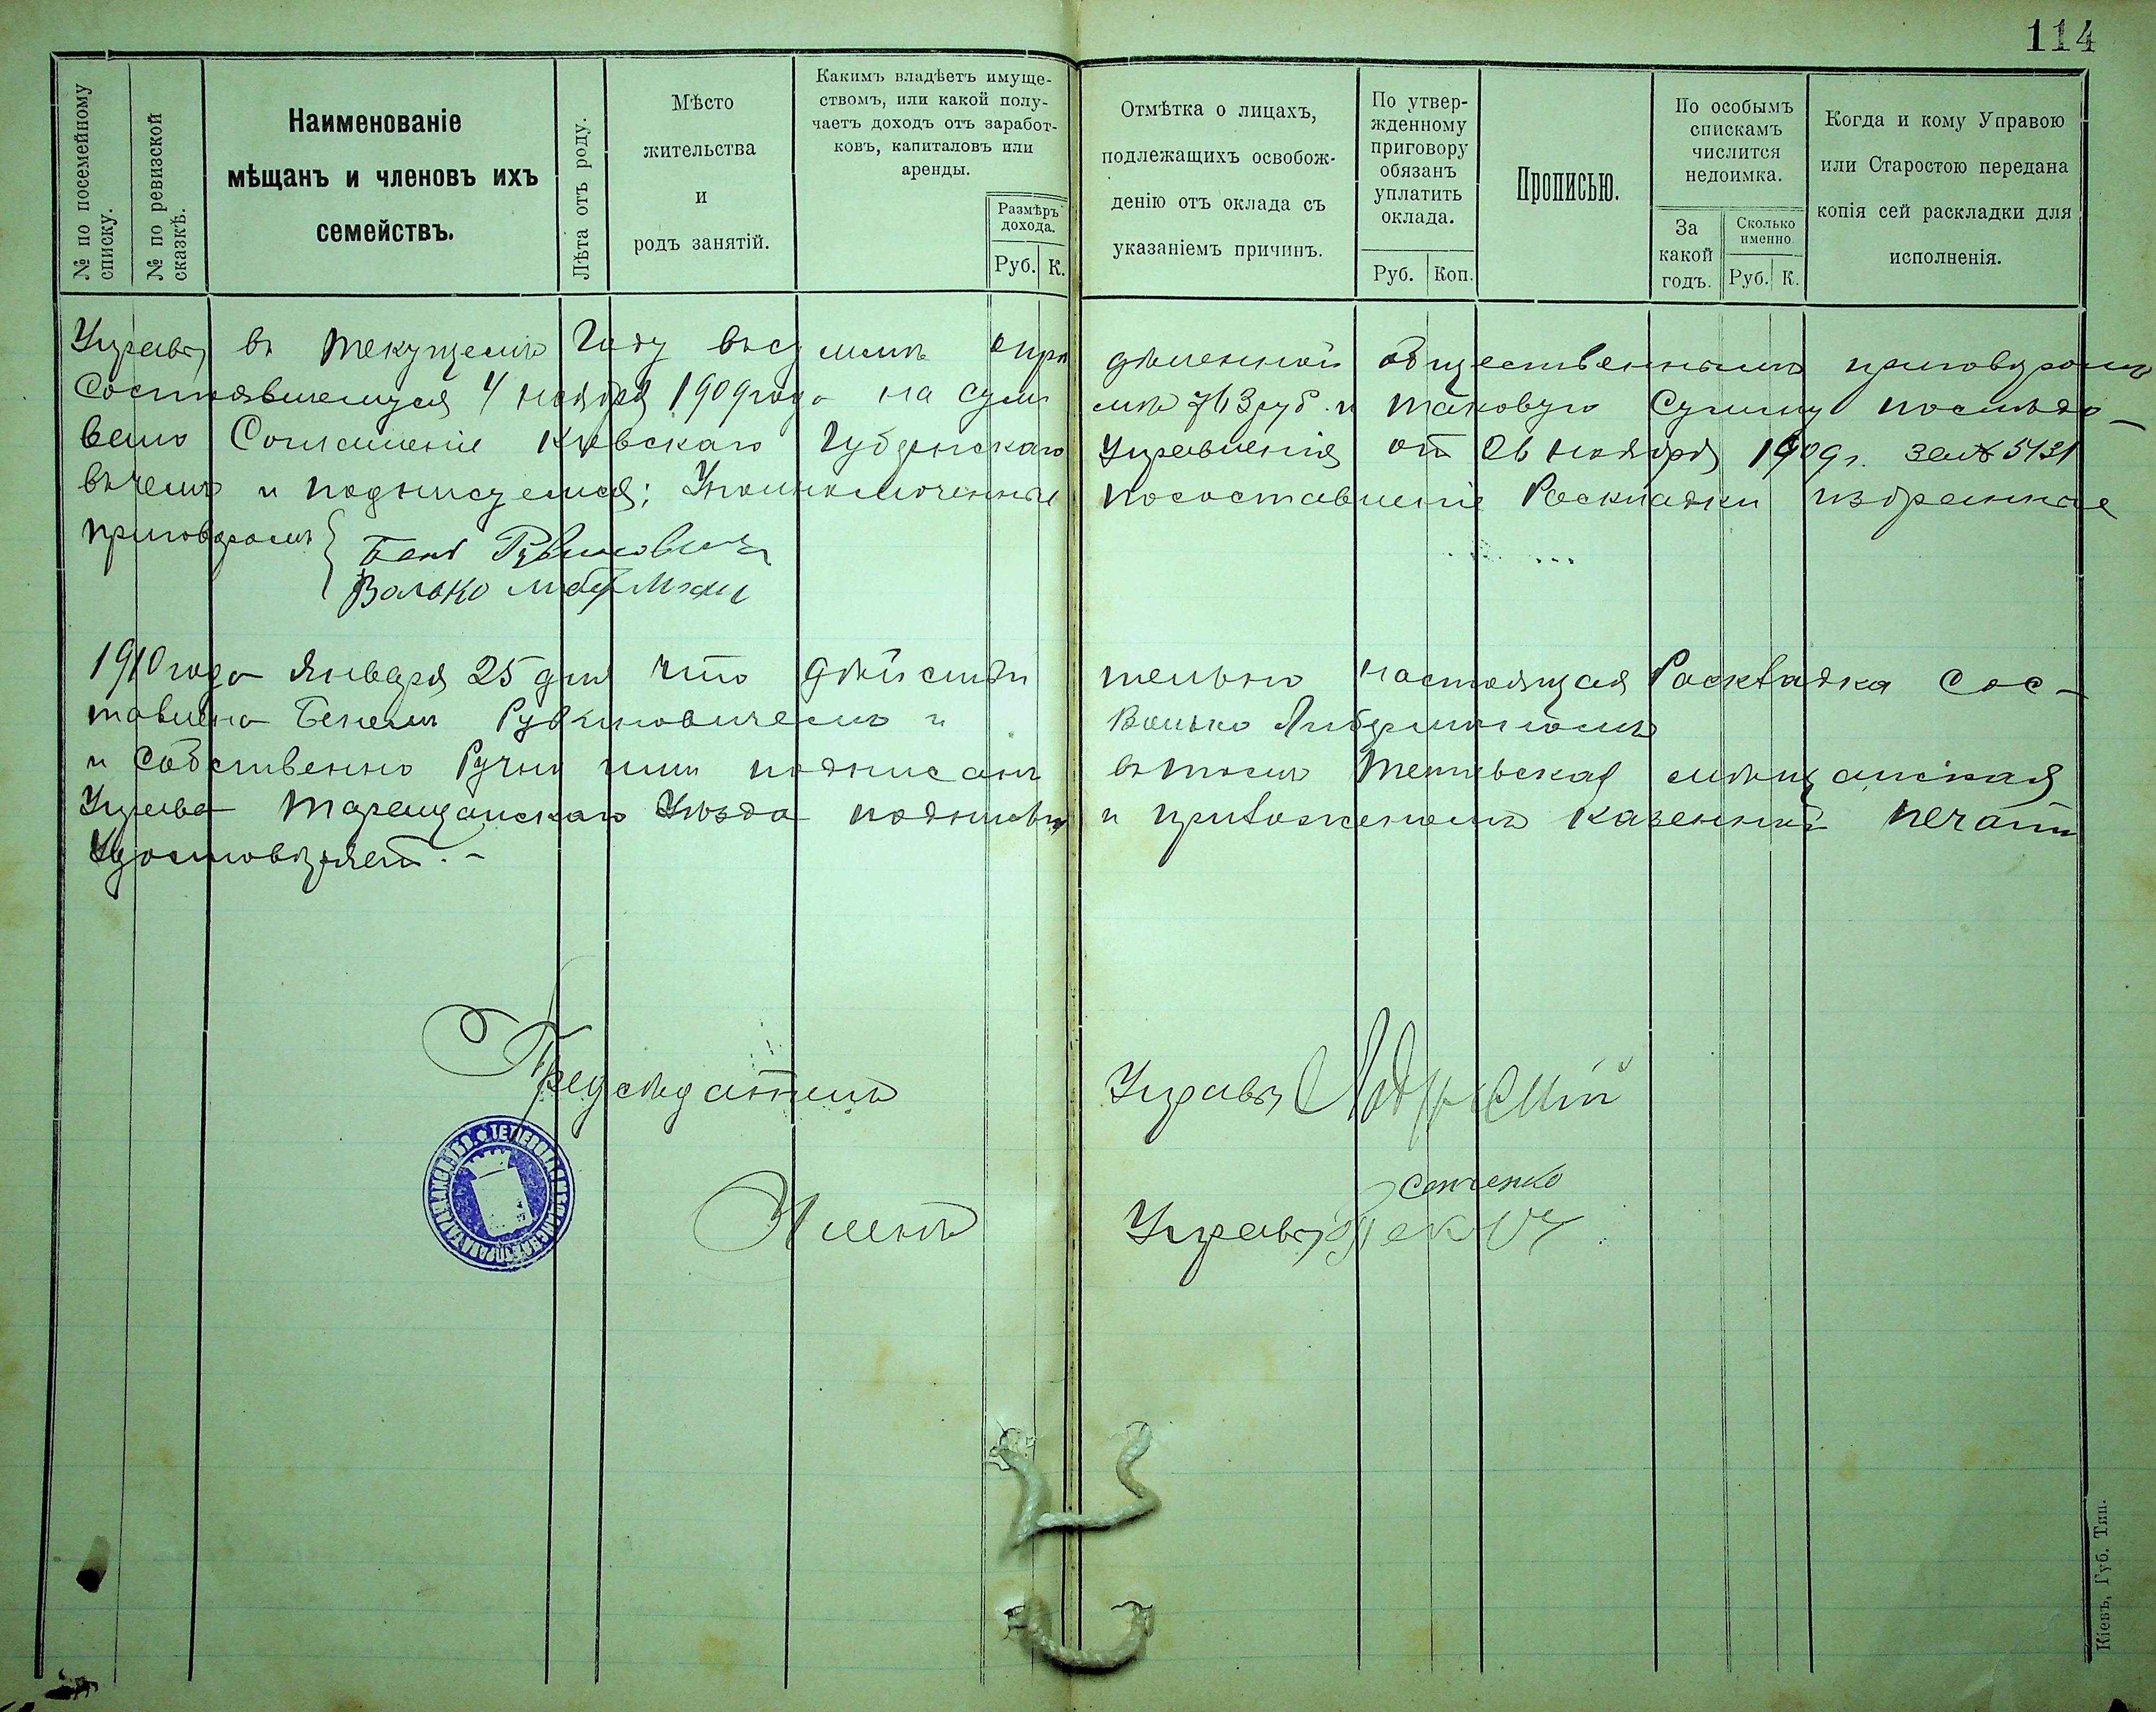 114
№ по посемейному списку.
№ по ревизской сказкѣ.
Наименованіе
мѣщанъ и членовъ ихъ
семействъ.
Лѣта отъ роду.
Мѣсто
жительства
и
родъ занятій.
Какимъ владѣетъ имуще-
ствомъ, или какой полу-
чаетъ доходъ отъ заработ-
ковъ, капиталовъ или
аренды.
Размѣръ
дохода.
Руб. К.
Отмѣтка о лицахъ,
подлежащихъ освобож-
денію отъ оклада съ
указаніемъ причинъ.
По утвер-
жденному
приговору
обязанъ
уплатить
оклада.
Руб. Коп.
Прописью.
По особымъ
спискамъ
числится
недоимка.
За
какой
годъ.
Сколько
именно
Руб. К.
Когда и кому Управою
или Старостою передана
копія сей раскладки для
исполненія.
Управы въ текущемъ Году въсуммѣ опре дѣленной общественнымъ приговоромъ
Состоявшемуся 4 ноября 1909 года на сум мѣ 763 руб. и таковую Сумму послѣдо-
вало Соглашеніе Кіевскаго Губернскаго Управленія от 26 ноября 1909 г. за № 5431
въчемъ и подписуемся; Уполномоченные посоставленіе Роскладки избранные
приговоромъ Бенъ Рувиновичъ
Волько Либерманъ
1910 года Января 25 дня что дѣйстви тельно настоящая Роскладка Сос-
тавлена Бенемъ Рувиновичемъ и Волько Либерманомъ
и Собственно Ручно ими подписана въ томъ Тетіевская мѣщанская
Управа Таращанскаго Уѣзда подписью и приложеніемъ казенной печати
Удостовѣряетъ. -
Предсѣдатель Управы
Членъ Управы
Сенченко
Кіевъ, Губ. Тип.